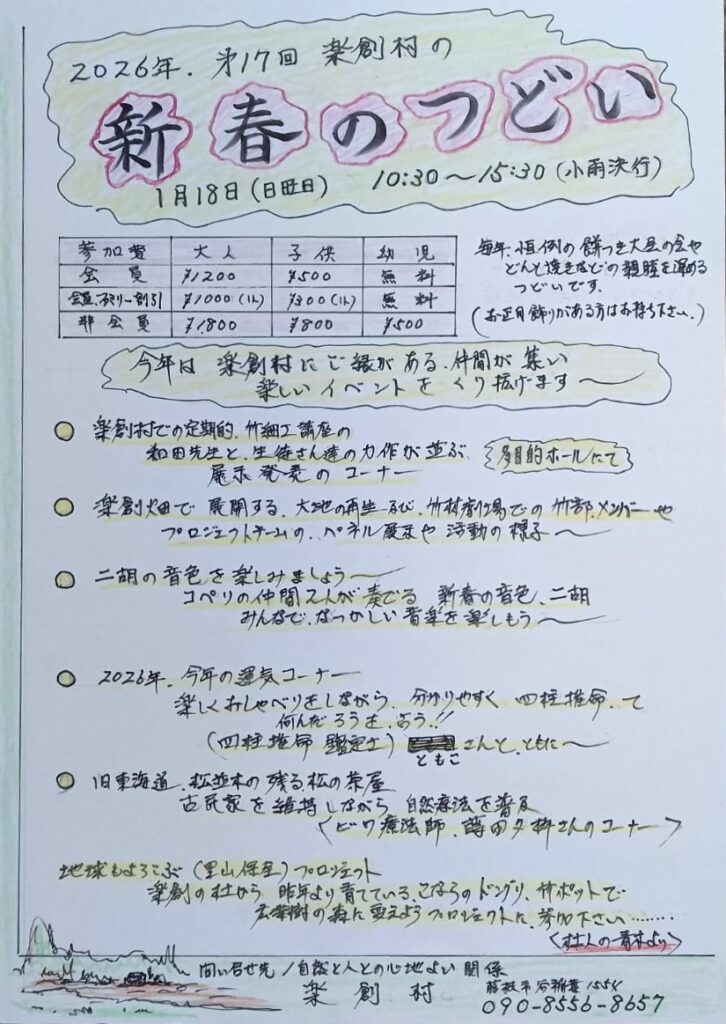 2026年.第17回 楽創村の
新春のつどい
1月18日(日曜日) 10:30〜15:30(小雨決行)
参加費 大人 子供 幼児
会員 ¥1200 ¥500 無料
会員.ファミリー割引 ¥1000(1人) ¥300(1人) 無料
非会員 ¥1800 ¥800 ¥500
毎年、恒例の餅つき大会の会や
どんと焼きなどの親睦を深める
つどいです。
(お正月飾りがある方はお持ち下さい。)
今年は楽創村にご縁がある、仲間が集い
楽しいイベントをくり拡げます〜
楽創村での定期的、竹細工講座の
和田先生と、生徒さん達の力作が並ぶ
展示発表のコーナー
多目的ホールにて
楽創畑で展開する、大地の再生及び、竹林劇場での竹部.メンバーや
プロジェクトチームの、パネル展示や活動の様子〜
二胡の音色を楽しみましょう〜
コペリの仲間2人が奏でる 新春の音色、二胡
みんなで、なつかしい音楽を楽しもう〜
2026年、今年の運気コーナー
楽しくおしゃべりをしながら、分かりやすく 四柱推命、て
何んだろうを、よう!!
(四柱推命 鑑定士) さんと、ともに〜
ともこ
旧東海道、松並木の残る、松の茶屋
古民家を維持しながら 自然療法を普及
<ビワ療法師、蒔田夕梓さんのコーナー>
地球もよろこぶ(里山保全)プロジェクト
楽創の杜から 昨年より育てている、こならのドングリ、竹ポットで
広葉樹の森に変えようプロジェクトに、参加下さい………
<杜人の青木より>
問い合せ先/自然と人との心地よい関係
楽創村
藤枝市谷稲葉1554
090-8556-8657